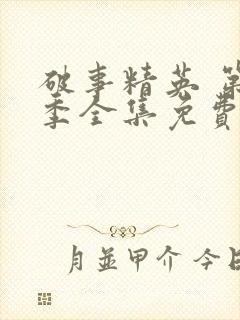 破事精英 第
季全集免費
月並甲介 今日